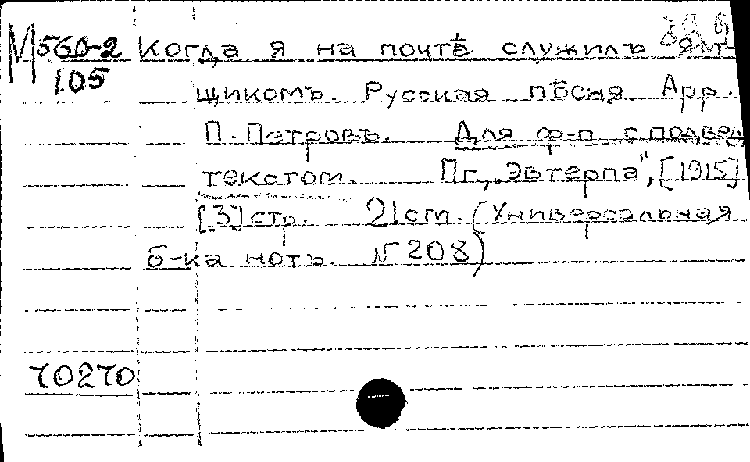 М 560-2 Когда я на почтѣ служилъ ям-
105
щикомъ. Русская пѣсня Арр.
П. Петровъ. Для ф-п с подвед
текстом. Пг., „Эвтерпа", [1915]
[3] стр. 21 cm. (Универсальная
б-ка нотъ. N 208)
70270